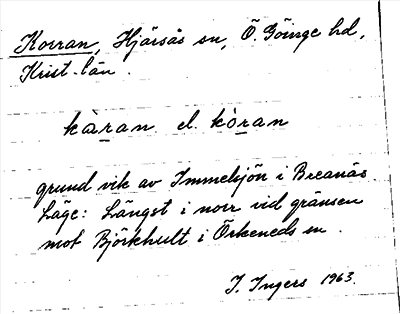 Korran, Hjärsås sn, Ö. Göinge hd,
Krist. län.
kàran el. kòran
grund vik av Immelsjön i Breanäs
Läge: Längst i norr vid gränsen
mot Björkhult i Örkeneds sn.
I. Ingers 1963.